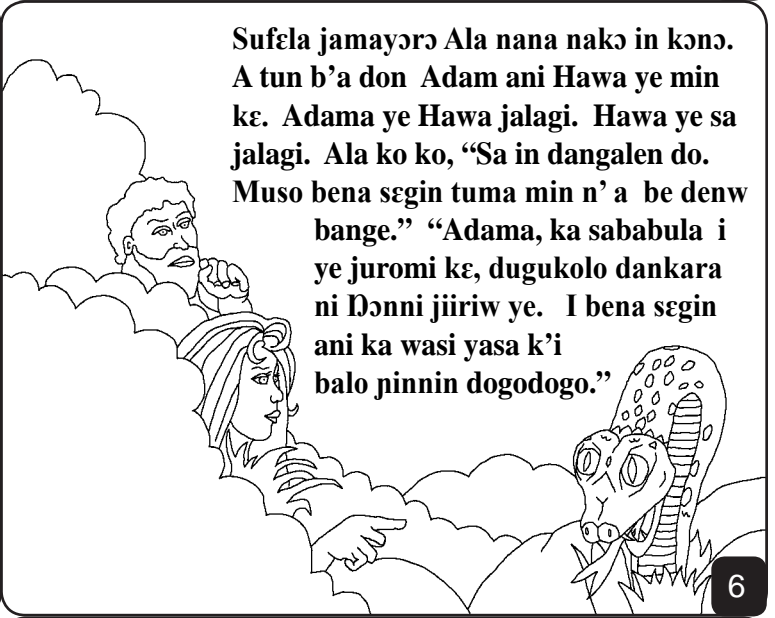 Sufɛla jamayɔrɔ Ala nana nakɔ in kɔnɔ.
A tun b’a don Adam ani Hawa ye min
kɛ. Adama ye Hawa jalagi. Hawa ye sa
jalagi. Ala ko ko, “Sa in dangalen do.
Muso bena sɛgin tuma min n’ a be denw
bange.” “Adama, ka sababula i
ye juromi kɛ, dugukolo dankara
ni Ŋɔnni jiiriw ye. I bena sɛgin
ani ka wasi yasa k’i
balo ɲinnin dogodogo.”
6